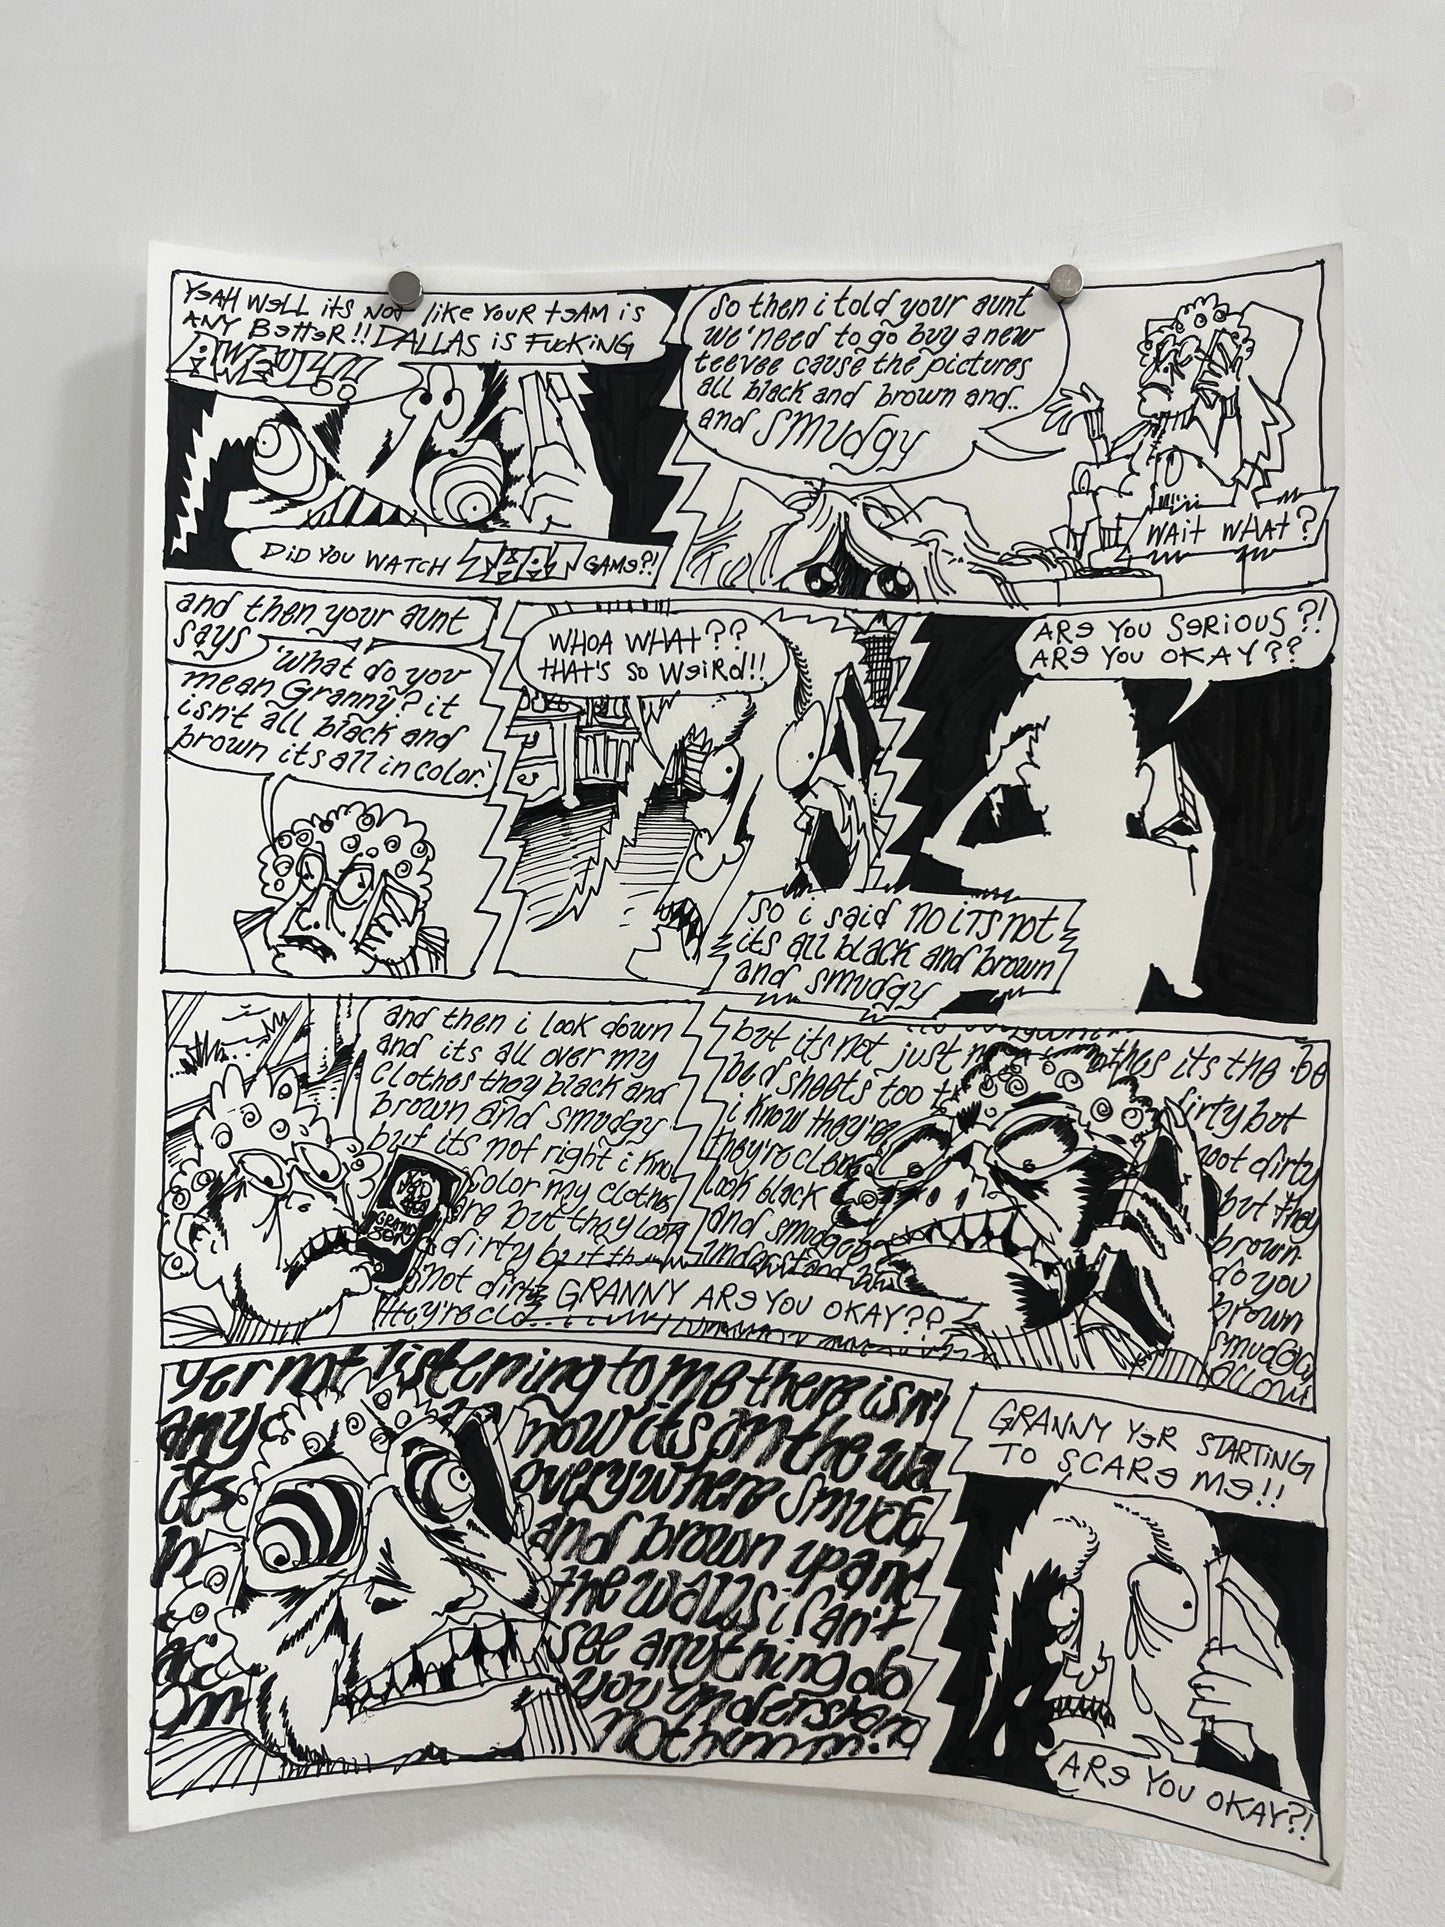 YEAH WELL itS NOt like YOUR tEAM is
ANY BEttER!! DALLAS is FUCKiNG
AWFUL!!!
DiD YOU WATCH
GAME?!
So then i told your aunt
we' need to go buy a new
teevee cause the pictures
all black and brown and..
and SMUdgy
WAit WHAt?
and then your aunt
says
'what do you
mean Granny? it
isn't all black and
brown its all in color.'
WHOA WHAT??
tHAT'S SO WEiRd!!
so i said NO iTS not
its all black and brown
and smudgy
ARE YOU SERiOUS?!
ARE YOU OKAY??
and then i look down
and its all over my
clothes they black and
brown and smudgy
but its not right i know
color my clothes
are but they look
dirty but th
not dirt
they're cle
but its not just m
othes its the be
bed sheets too t
dirty but
i know they're
not dirty
they're clean
but they
look black
brown
and smudgey
do you
understand
brown
smudgey
GRANNY ARE YOU OKAY??
yer not listening to me there isn't
any
now its on the wa
its
everywhere smudg
and brown up and
the walls i can't
see anything do
you understand
nothinnnn?
GRANNY YER STARTiNG
TO SCARE ME!!
ARE YOU OKAY?!